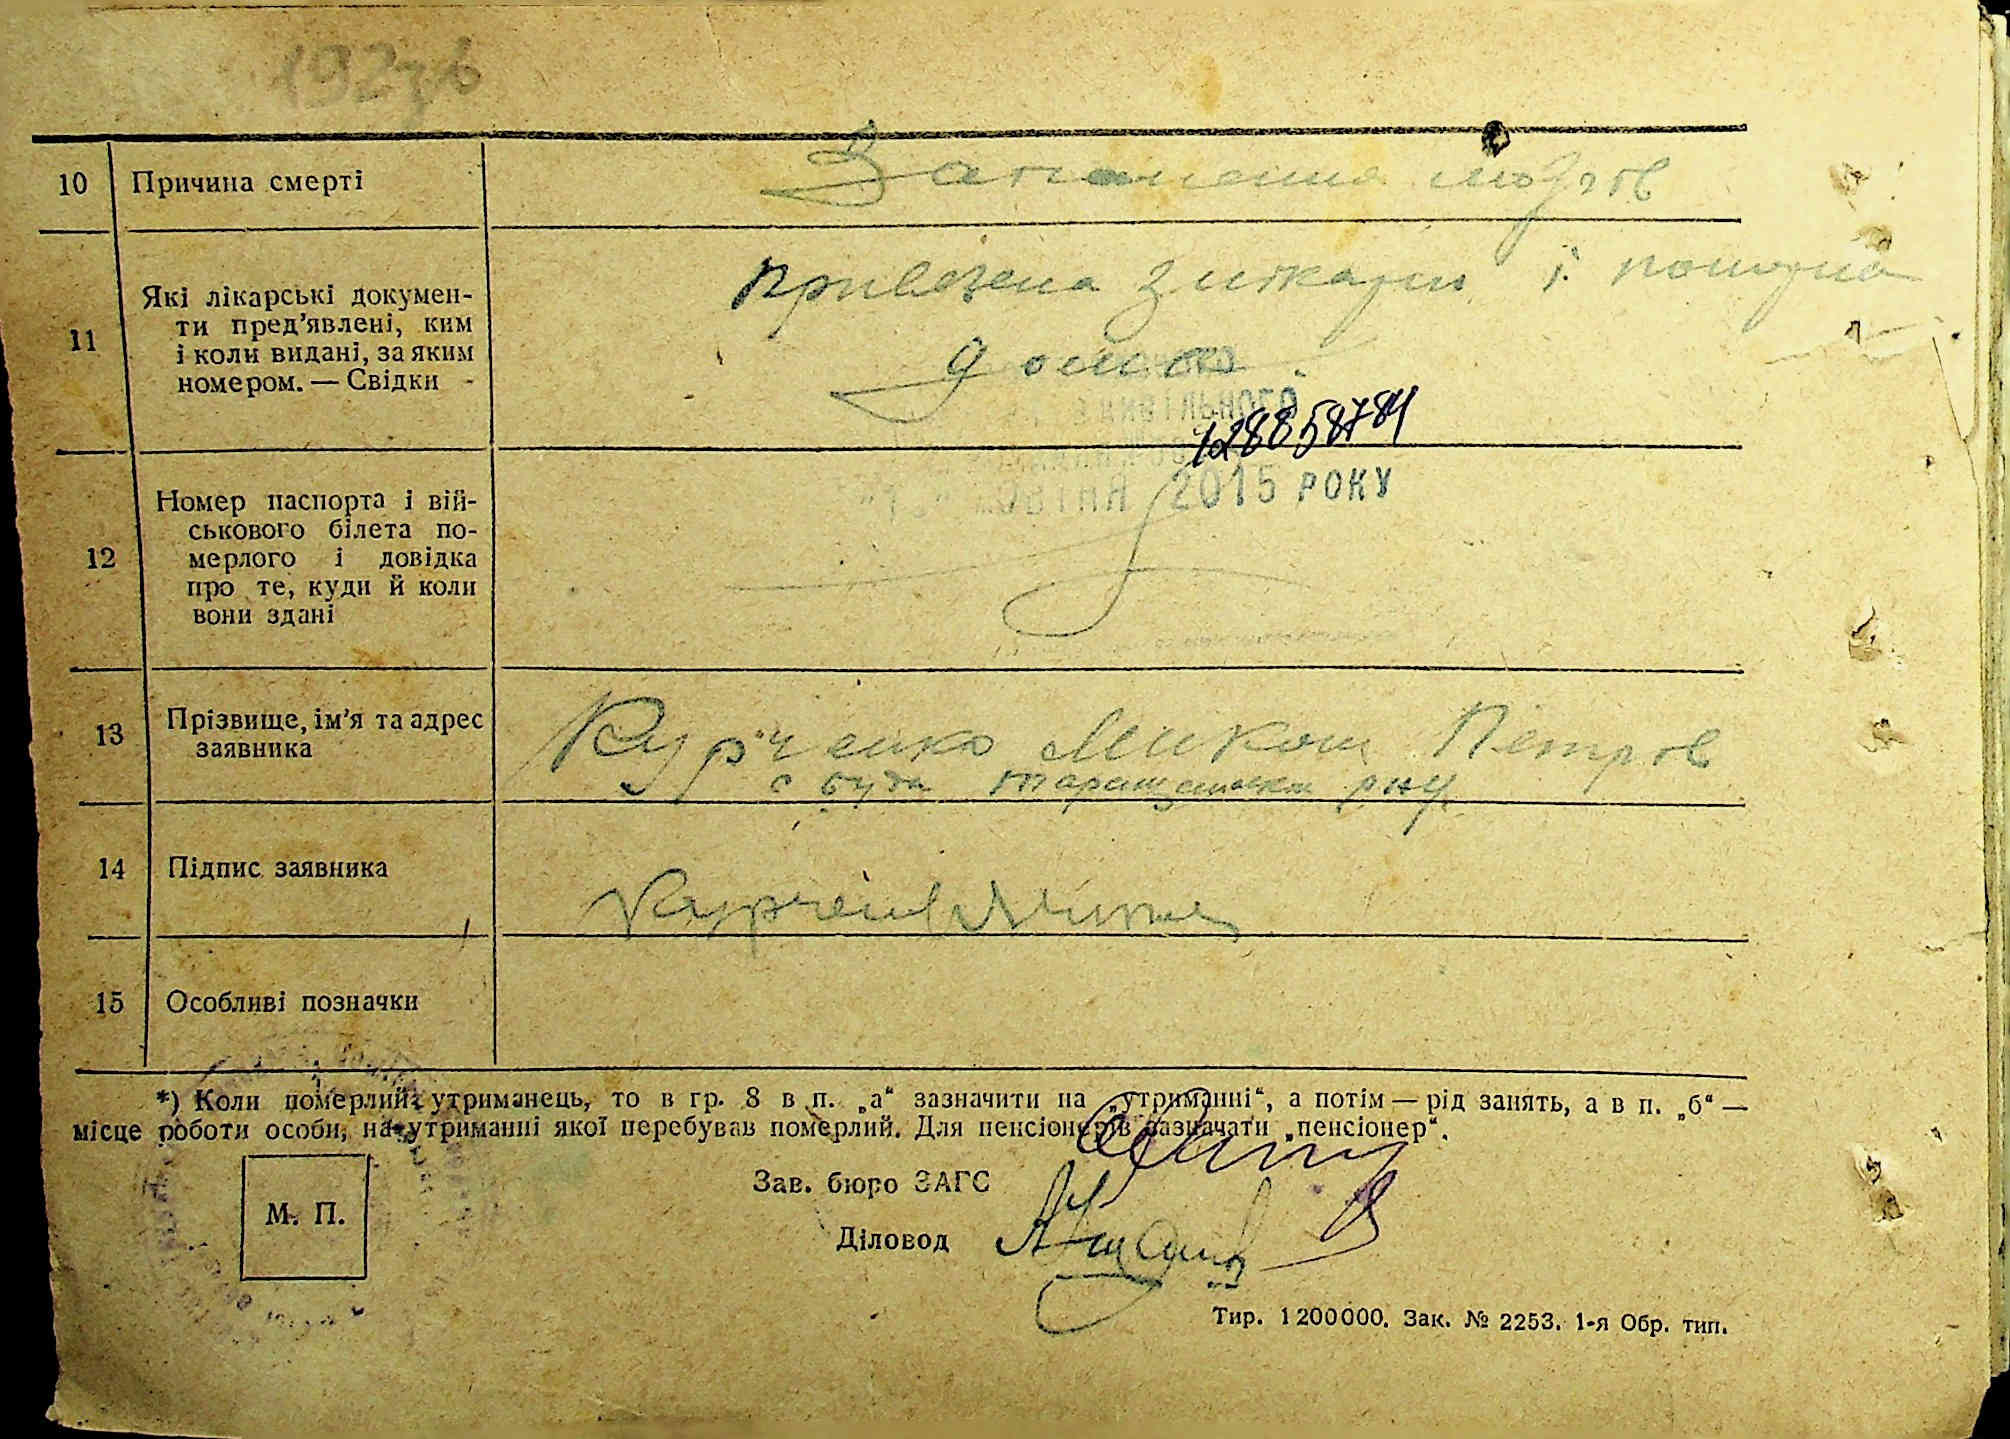 10 Причина смерті
Запалення мозгів
11 Які лікарські докумен-
ти пред'явлені, ким
і коли видані, за яким
номером. — Свідки
Привезена з лікарні і померла
дома
ивільного
128858784
2015 РОКУ
12 Номер паспорта і вій-
ськового білета по-
мерлого і довідка
про те, куди й коли
вони здані
13 Прізвище, ім'я та адрес
заявника
Курченко Микола Петров
с Буда Таращанськ рну
14 Підпис заявника
15 Особливі позначки
*) Коли померлий утриманець, то в гр. 8 в п. „а“ зазначити на „утриманні“, а потім — рід занять, а в п. „б“ —
місце роботи особи, на утриманні якої перебував померлий. Для пенсіонерів зазначати „пенсіонер“.
М. П.
Зав. бюро ЗАГС
Діловод
Тир. 1 200 000. Зак. № 2253. 1-я Обр. тип.